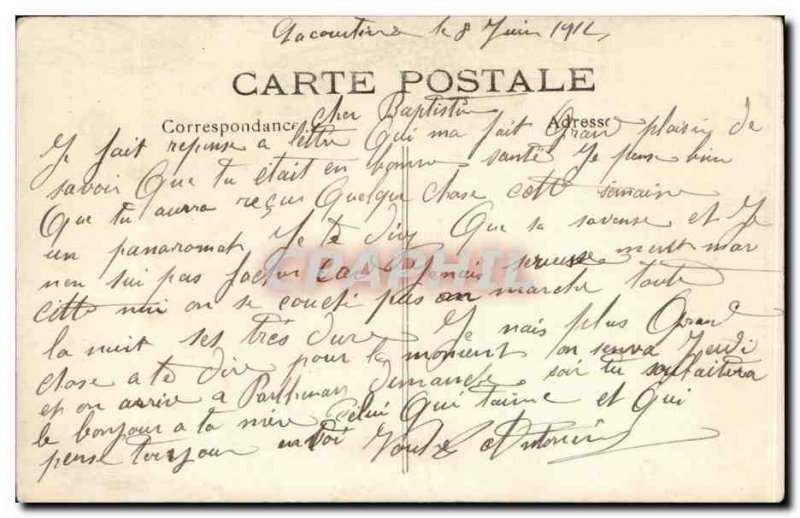 Lacourtine le 8 Juin 1912
CARTE POSTALE
Correspondance Adresse
Cher Baptistin
Je fait reponse a lettre Qui ma fait Grand plaisir de
savoir Que tu était en bonne santé Je pense bien
Que tu aura reçus Quelque chose cette semaine
un panaromat Je te dire Que sa et Je
nen sui pas car Jamais
cette nui on se couché pas on marche toute
la nuit ses très dure Je nais plus Grand
chose a te dire pour le moment on Jeudi
et on arrive a dimanche soir tu souhaitera
le bonjour a ta mère Celui Qui taime et Qui
pense toujour a toi Antonin
CRAPHIL